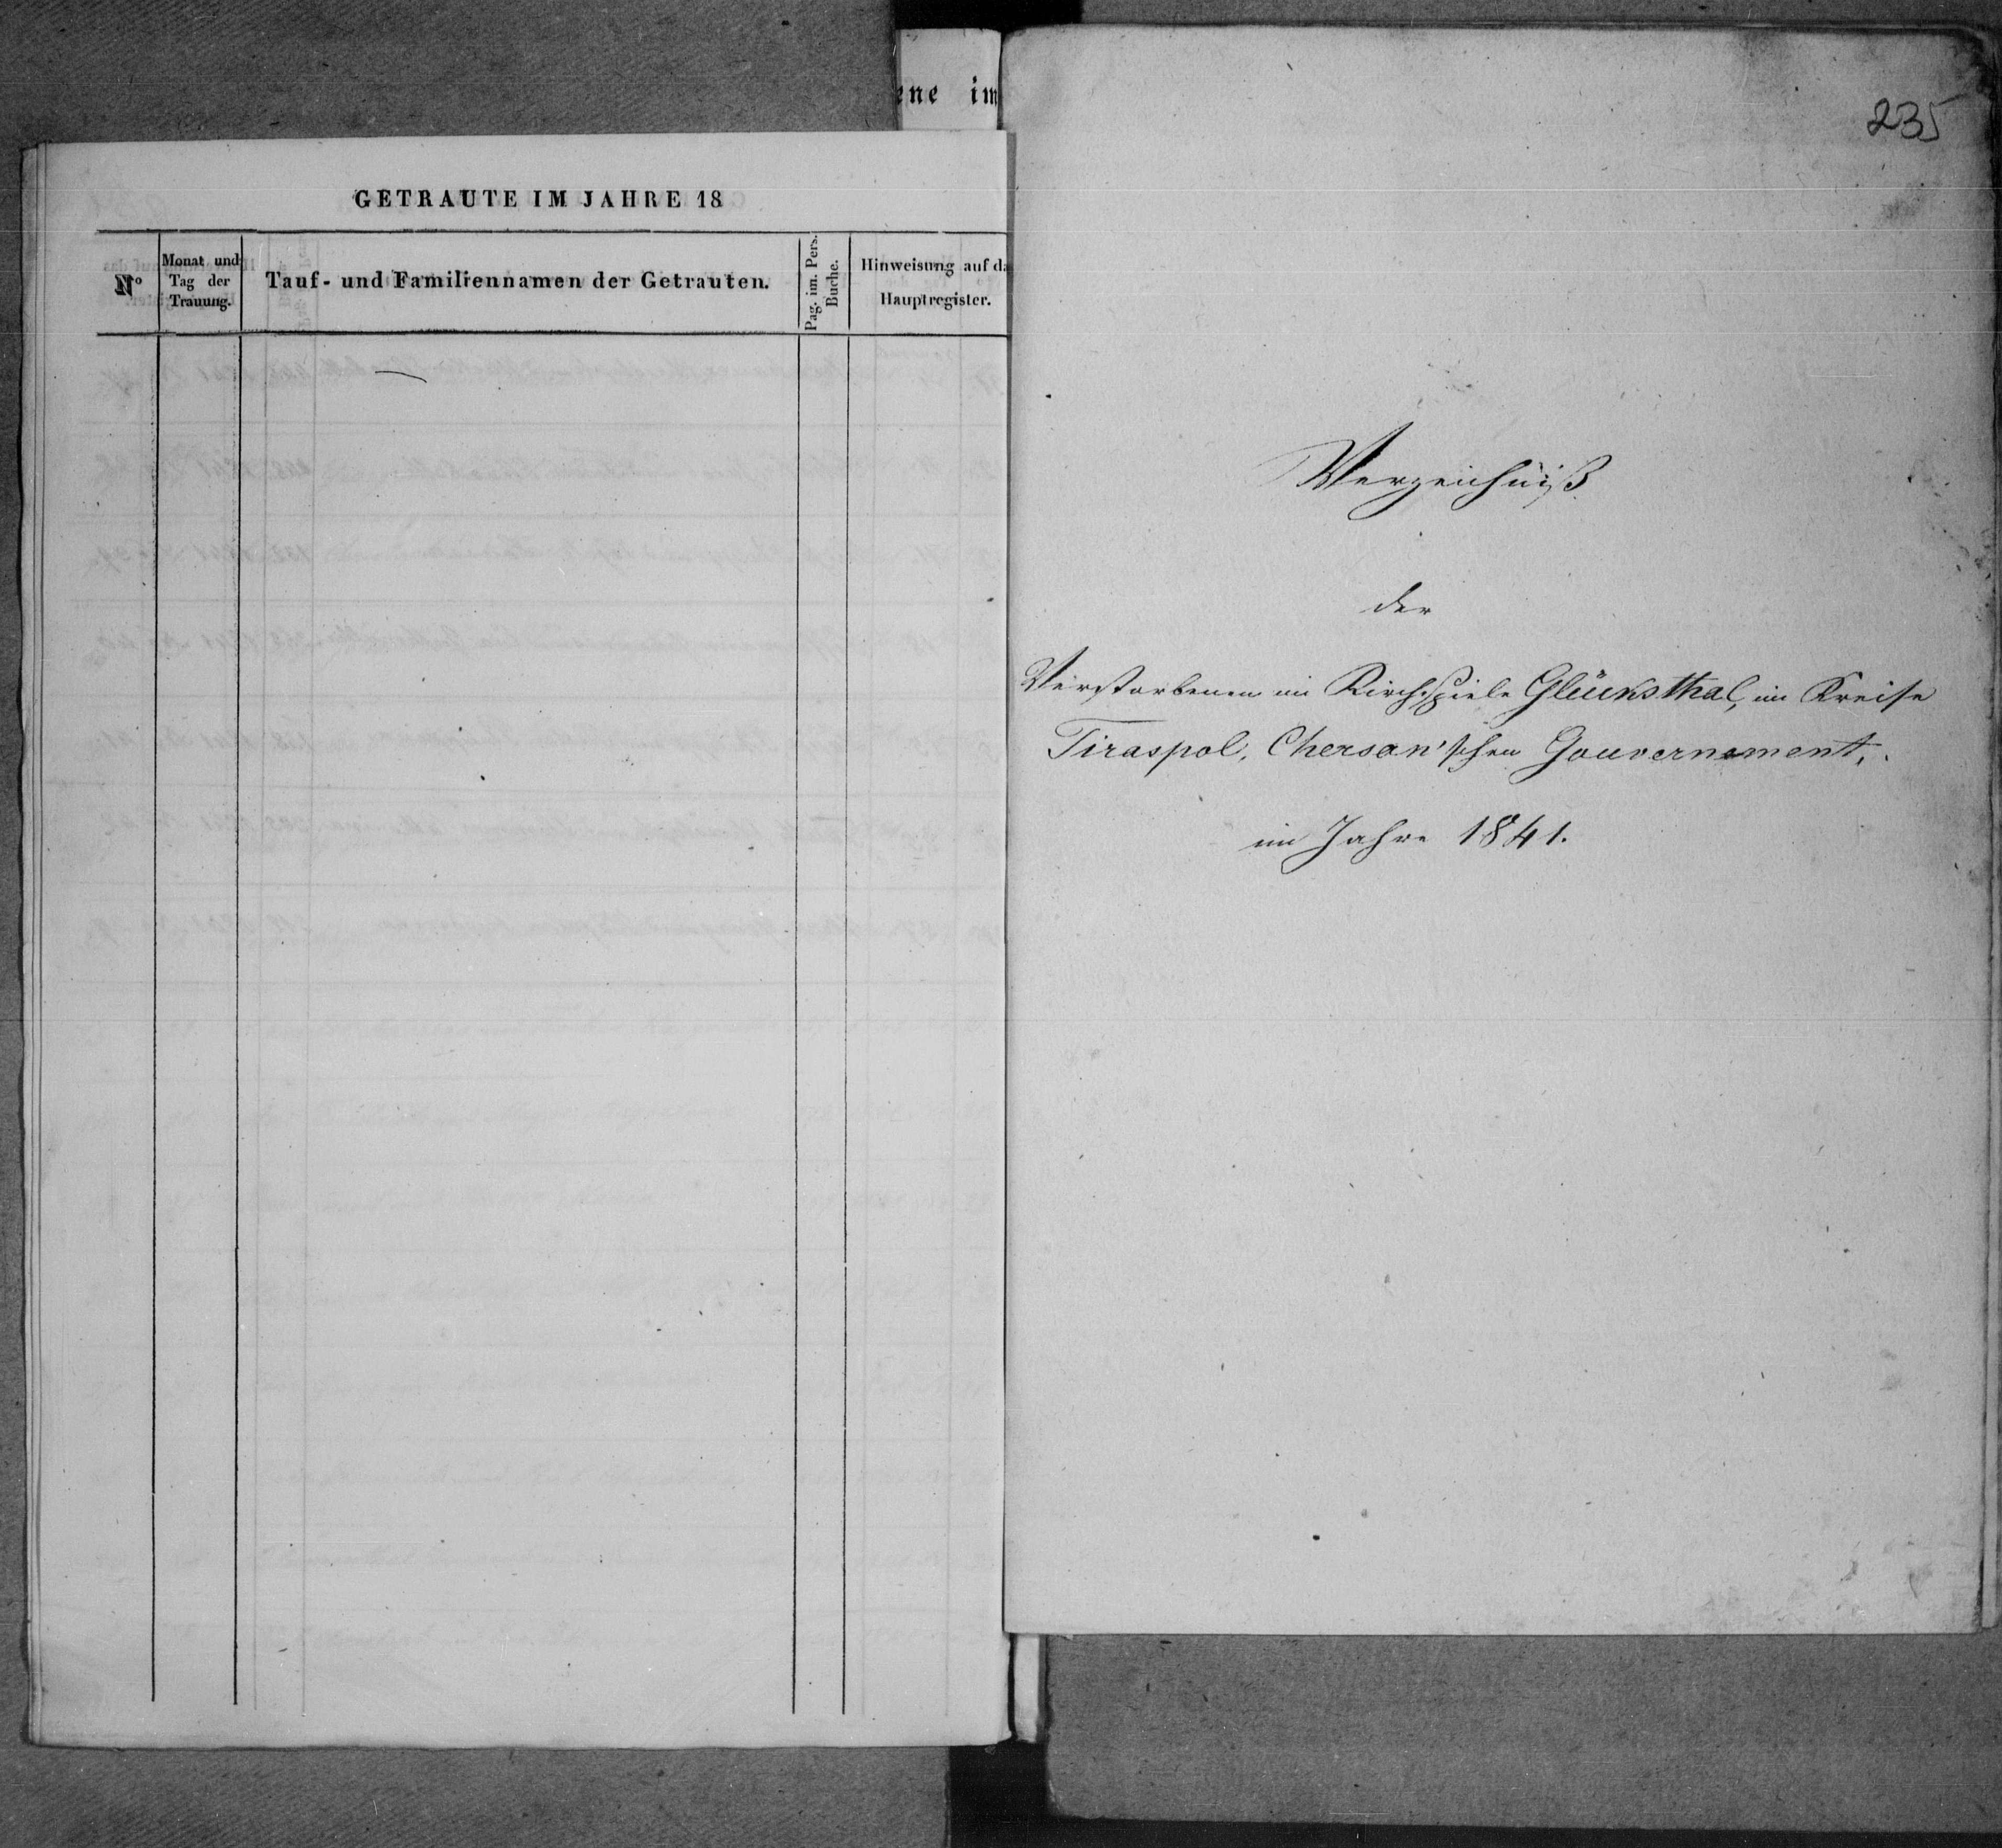 ene im
GETRAUTE IM JAHRE 18
Nº
Monat und
Tag der
Trauung.
Tauf- und Familiennamen der Getrauten.
Pag. im. Pers.
Buche.
Hinweisung auf da
Hauptregister.
235
Verzeichniß
der
Verstorbenen im Kirchspiele Glücksthal, im Kreise
Tiraspol, Cherson'schen Gouvernement,
im Jahre 1841.